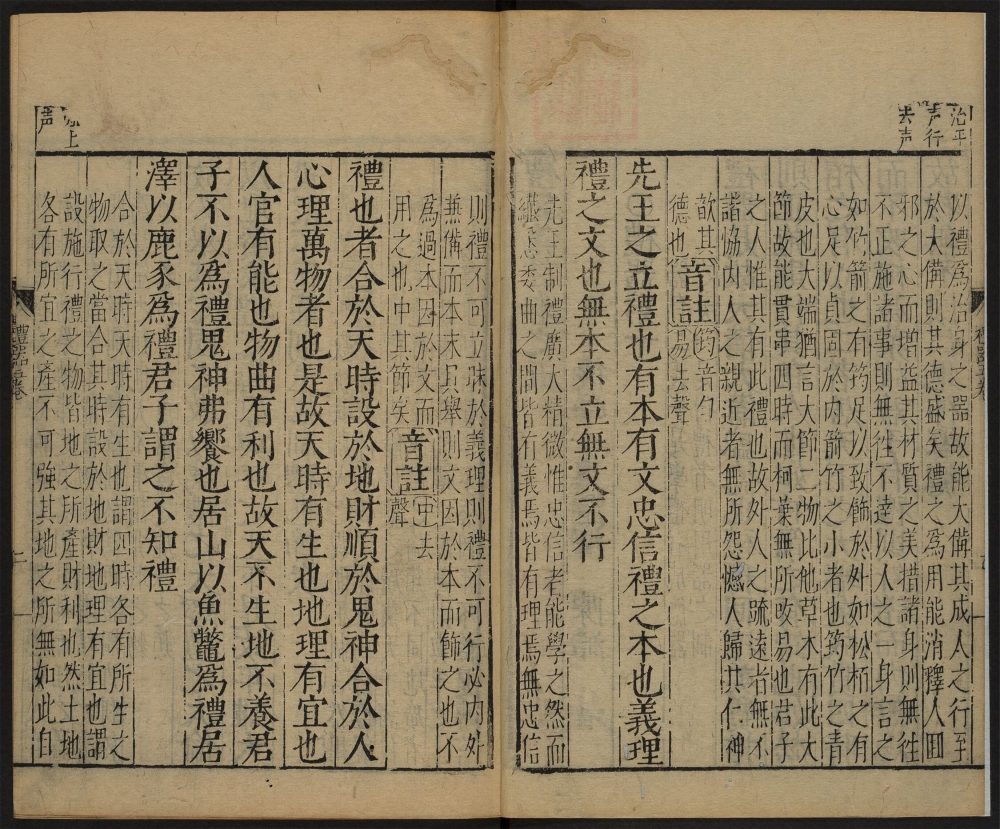 治平
声行
去声
以禮爲治身之器故能大備其成人之行至
於大備則其德盛矣禮之爲用能消釋人回
邪之心而增益其材質之美措諸身則無往
不正施諸事則無往不達以人之一身言之
如竹箭之有筠足以致飾於外如松栢之有
心足以貞固於內箭竹之小者也筠竹之青
皮也大端猶言大節二物比他草木有此大
節故能貫串四時而柯葉無所改易也君子
之人惟其有此禮也故外人之踈遠者無不
諧恊內人之親近者無所怨憾人歸其仁神
歆其
德也音註筠音勻易去聲
先王之立禮也有本有文忠信禮之本也義理
禮之文也無本不立無文不行
先王制禮廣大精微惟忠信者能學之然而
纎悉委曲之間皆有義焉皆有理焉無忠信
則禮不可立昧於義理則禮不可行必內外
兼備而本末具舉則文因於本而飾之也不
爲過本因於文而
用之也中其節矣音註中去聲
禮也者合於天時設於地財順於鬼神合於人
心理萬物者也是故天時有生也地理有宜也
人官有能也物曲有利也故天不生地不養君
子不以爲禮鬼神弗饗也居山以魚鱉爲禮居
澤以鹿豕爲禮君子謂之不知禮
上
声
合於天時天時有生也謂四時各有所生之
物取之當合其時設於地財地理有宜也謂
設施行禮之物皆地之所產財利也然土地
各有所宜之產不可強其地之所無如此自